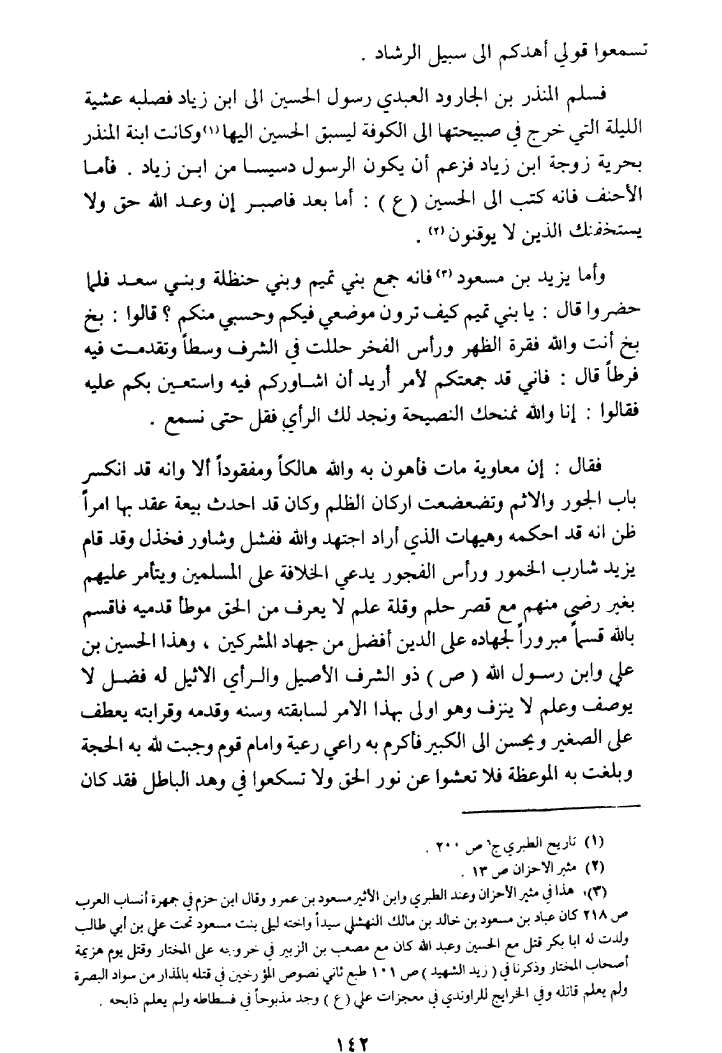 تسمعوا قولي أهدكم الى سبيل الرشاد .
فسلم المنذر بن الجارود العبدي رسول الحسين الى ابن زياد فصلبه عشية
الليلة التي خرج في صبيحتها الى الكوفة ليسبق الحسين اليها (١) وكانت ابنة المنذر
بحرية زوجة ابن زياد فزعم أن يكون الرسول دسيسا من ابن زياد . فأما
الأحنف فانه كتب الى الحسين (ع) : أما بعد فاصبر إن وعد الله حق ولا
يستخفنك الذين لا يوقنون (٢) .
وأما يزيد بن مسعود (٣) فانه جمع بني تميم وبني حنظلة وبني سعد فلما
حضروا قال : يا بني تميم كيف ترون موضعي فيكم وحسبي منكم ؟ قالوا : بخ
بخ أنت والله فقرة الظهر ورأس الفخر حللت في الشرف وسطاً وتقدمت فيه
فرطاً قال : فاني قد جمعتكم لأمر أريد أن اشاوركم فيه واستعين بكم عليه
فقالوا : إنا والله نمنحك النصيحة ونجد لك الرأي فقل حتى نسمع .
فقال : إن معاوية مات فأهون به والله هالكاً ومفقوداً ألا وانه قد انكسر
باب الجور والاثم وتضعضعت اركان الظلم وكان قد احدث بيعة عقد بها امراً
ظن انه قد احكمه وهيهات الذي أراد اجتهد والله ففشل وشاور فخذل وقد قام
يزيد شارب الخمور ورأس الفجور يدعي الخلافة على المسلمين ويتأمر عليهم
بغير رضى منهم مع قصر حلم وقلة علم لا يعرف من الحق موطأ قدميه فاقسم
بالله قسماً مبروراً لجهاده على الدين أفضل من جهاد المشركين ، وهذا الحسين بن
علي وابن رسول الله (ص) ذو الشرف الأصيل والرأي الاثيل له فضل لا
يوصف وعلم لا ينزف وهو اولى بهذا الامر لسابقته وسنه وقدمه وقرابته يعطف
على الصغير ويحسن الى الكبير فأكرم به راعي رعية وامام قوم وجبت لله به الحجة
وبلغت به الموعظة فلا تعشوا عن نور الحق ولا تسكعوا في وهد الباطل فقد كان
(١) تاريخ الطبري ج٦ ص ٢٠٠ .
(٢) مثير الاحزان ص ١٣ .
(٣) هذا في مثير الأحزان وعند الطبري وابن الأثير مسعود بن عمرو وقال ابن حزم في جمهرة أنساب العرب
ص ٢١٨ كان عباد بن مسعود بن خالد بن مالك النهشلي سيداً واخته ليلى بنت مسعود تحت علي بن أبي طالب
ولدت له ابا بكر قتل مع الحسين وعبد الله كان مع مصعب بن الزبير في خروجه على المختار وقتل يوم هزيمة
أصحاب المختار وذكرنا في (زيد الشهيد) ص ١٠١ طبع ثاني نصوص المؤرخين في قتله بالمذار من سواد البصرة
ولم يعلم قاتله وفي الخرايج للراوندي في معجزات علي (ع) وجد مذبوحاً في فسطاطه ولم يعلم ذابحه .
١٤٢